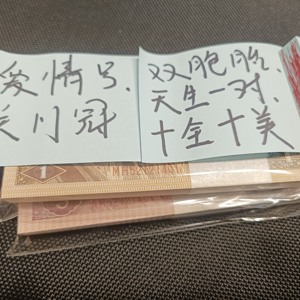 爱情号.
关门冠
双胞胎.
天生一对.
十全十美
1